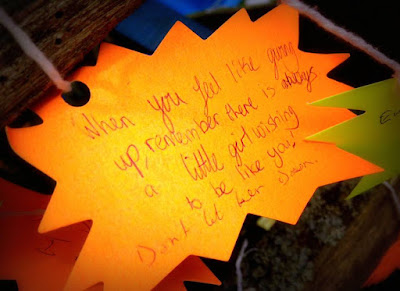 When you feel like giving
up, remember there is always
a little girl wishing
to be like you.
Don't let her down.